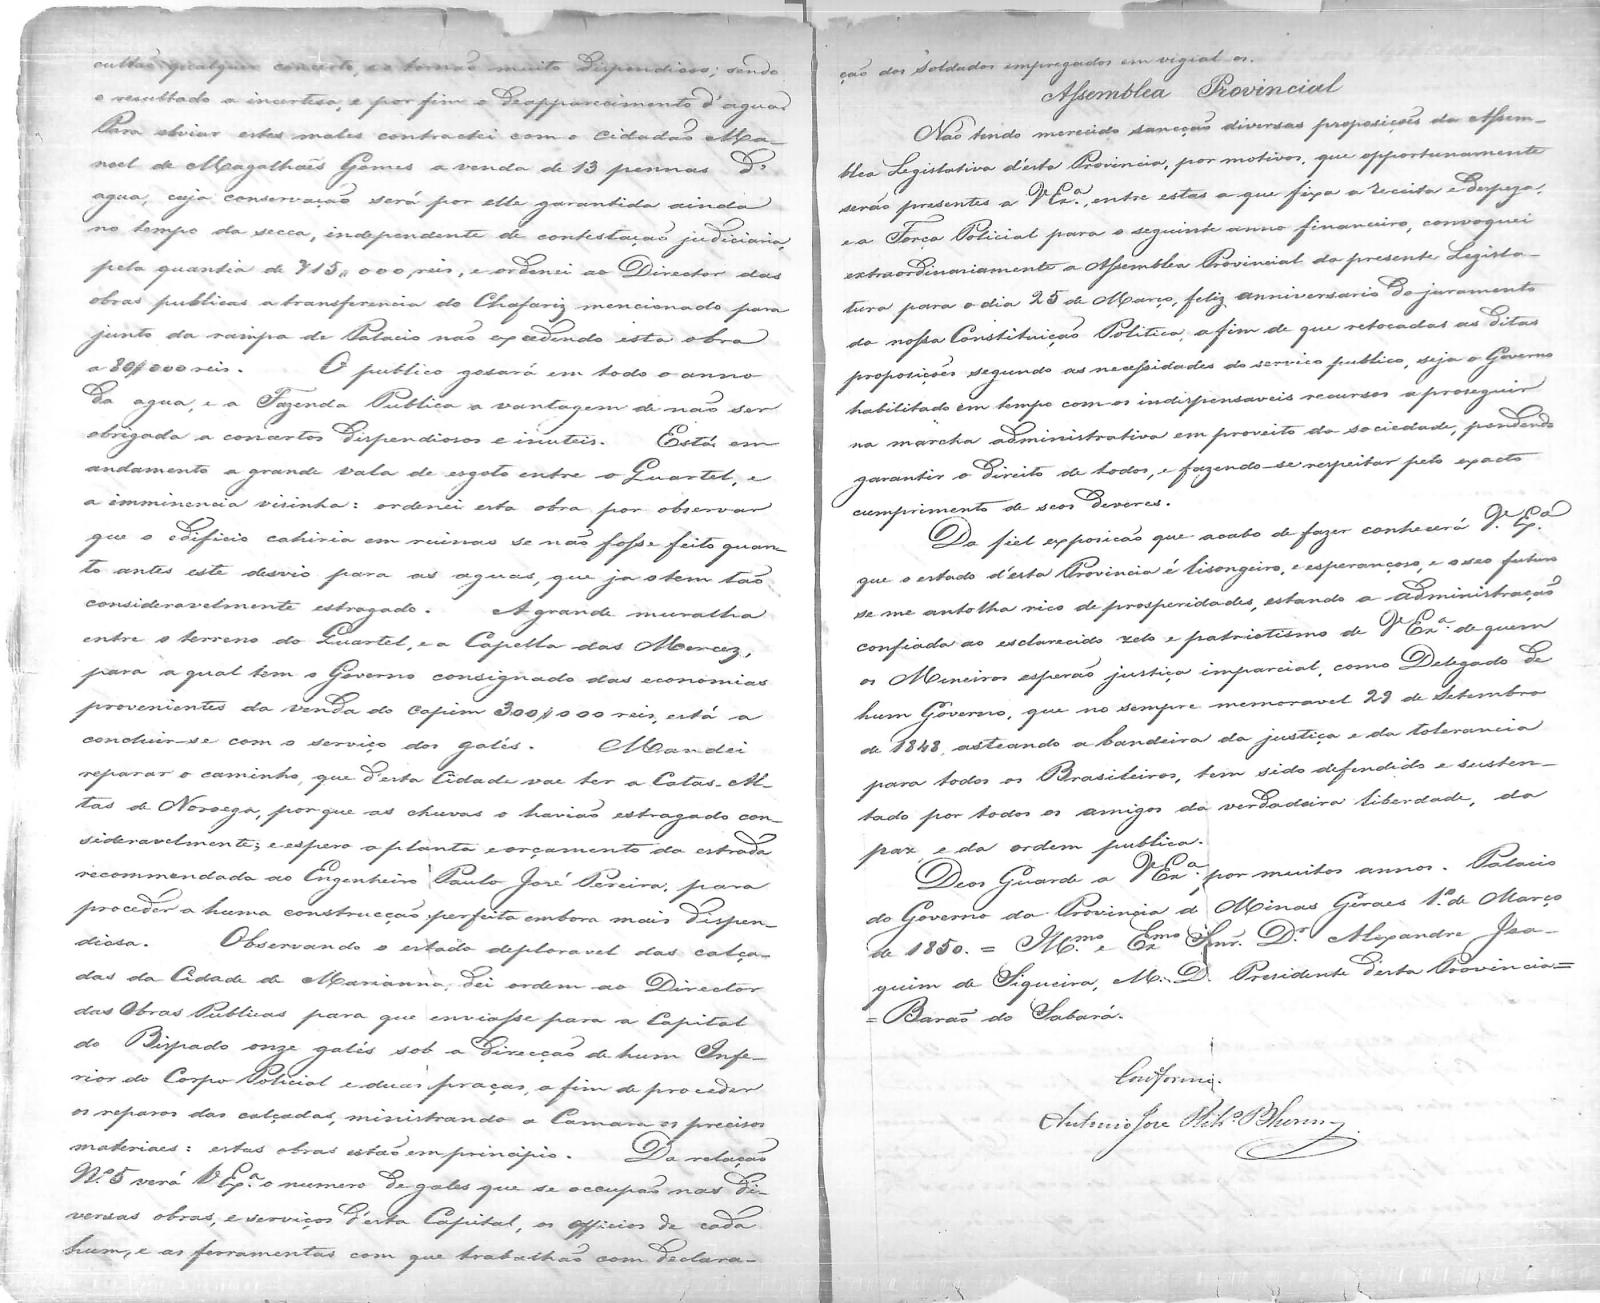 cultão qualquer concerto, e o tornão muito dispendioso; sendo
o resultado a incertesa, e por fim o desapparecimento d'agua.
Para obviar estes males contractei com o Cidadão Ma-
noel de Magalhães Gomes a venda de 13 pennas d'
agua, cuja conservação será por elle garantida ainda
no tempo da secca, independente de contestação judiciaria,
pela quantia de 715,,000 reis, e ordenei ao Director das
obras publicas a transferencia do Chafariz mencionado para
junto da rampa de Palacio não excedendo esta obra
a 80$000 reis. O publico gosará em todo o anno
da agua, e a Fazenda Publica a vantagem de não ser
obrigada a concertos dispendiosos e inuteis. Está em
andamento a grande vala de esgoto entre o Quartel, e
a imminencia visinha: ordenei esta obra por observar
que o edificio cahiria em ruinas se não fosse feito quan-
to antes este desvio para as aguas, que ja o tem tão
consideravelmente estragado. A grande muralha
entre o terreno do Quartel, e a Capella das Mercez,
para a qual tem o Governo consignado das economias
provenientes da venda do capim 300$000 reis, está a
concluir-se com o serviço dos galés. Mandei
reparar o caminho, que d'esta Cidade vae ter a Catas-Al-
tas de Noroega, porque as chuvas o havião estragado con-
sideravelmente; e espero a planta e orçamento da estrada
recommendada ao Engenheiro Paulo José Pereira, para
proceder a huma construcção perfeita embora mais dispen-
diosa. Observando o estado deploravel das calça-
das da Cidade de Marianna, dei ordem ao Director
das Obras Publicas para que enviasse para a Capital
do Bispado onze galés sob a direcção de hum Infe-
rior do Corpo Policial e duas praças, a fim de proceder
os reparos das calçadas, ministrando a Camara os precisos
materiaes: estas obras estão em principio. Da relação
N.º 5 verá V Ex.ª o numero de gales que se occupão nas di-
versas obras, e serviços d'esta Capital, os officios de cada
hum, e as ferramentas com que trabalhão com declara-
ção dos Soldados empregados em vigial os.
Assemblea Provincial
Não tendo merecido sancção diversas proposições da Assem-
blea Legislativa d'esta Provincia, por motivos, que opportunamente
serão presentes a V Ex.ª, entre estas a que fixa a receita e despeza,
e a Força Policial para o seguinte anno financeiro, convoquei
extraordinariamente a Assemblea Provincial da presente Legisla-
tura para o dia 25 de Março, feliz anniversario do juramento
da nossa Constituição Politica, a fim de que retocadas as ditas
proposições segundo as necessidades do serviço publico, seja o Governo
habilitado em tempo com os indispensaveis recursos a proseguir
na marcha administrativa em proveito da sociedade, podendo
garantir o direito de todos, e fazendo-se respeitar pelo exacto
cumprimento de seos deveres.
Da fiel exposição que acabo de fazer conhecerá V. Ex.ª
que o estado d'esta Provincia é lisongeiro, e esperançoso, e o seo futuro
se me antolha rico de prosperidades, estando a administração
confiada ao esclarecido zelo e patriotismo de V Ex.ª de quem
os Mineiros esperão justiça imparcial, como Delegado de
hum Governo, que no sempre memoravel 29 de Setembro
de 1848, asteando a bandeira da justiça e da tolerancia
para todos os Brasileiros, tem sido defendido e susten-
tado por todos os amigos da verdadeira liberdade, da
paz, e da ordem publica.
Deos Guarde a V Ex.ª por muitos annos. Palacio
do Governo da Provincia de Minas Geraes 1.º de Março
de 1850. = Ill.mo e Ex.mo Snr. D.r Alexandre Joa-
quim de Siqueira, M. D. Presidente d'esta Provincia =
= Barão do Sabará.
Conforme.
Antonio José Rib.º Bhering